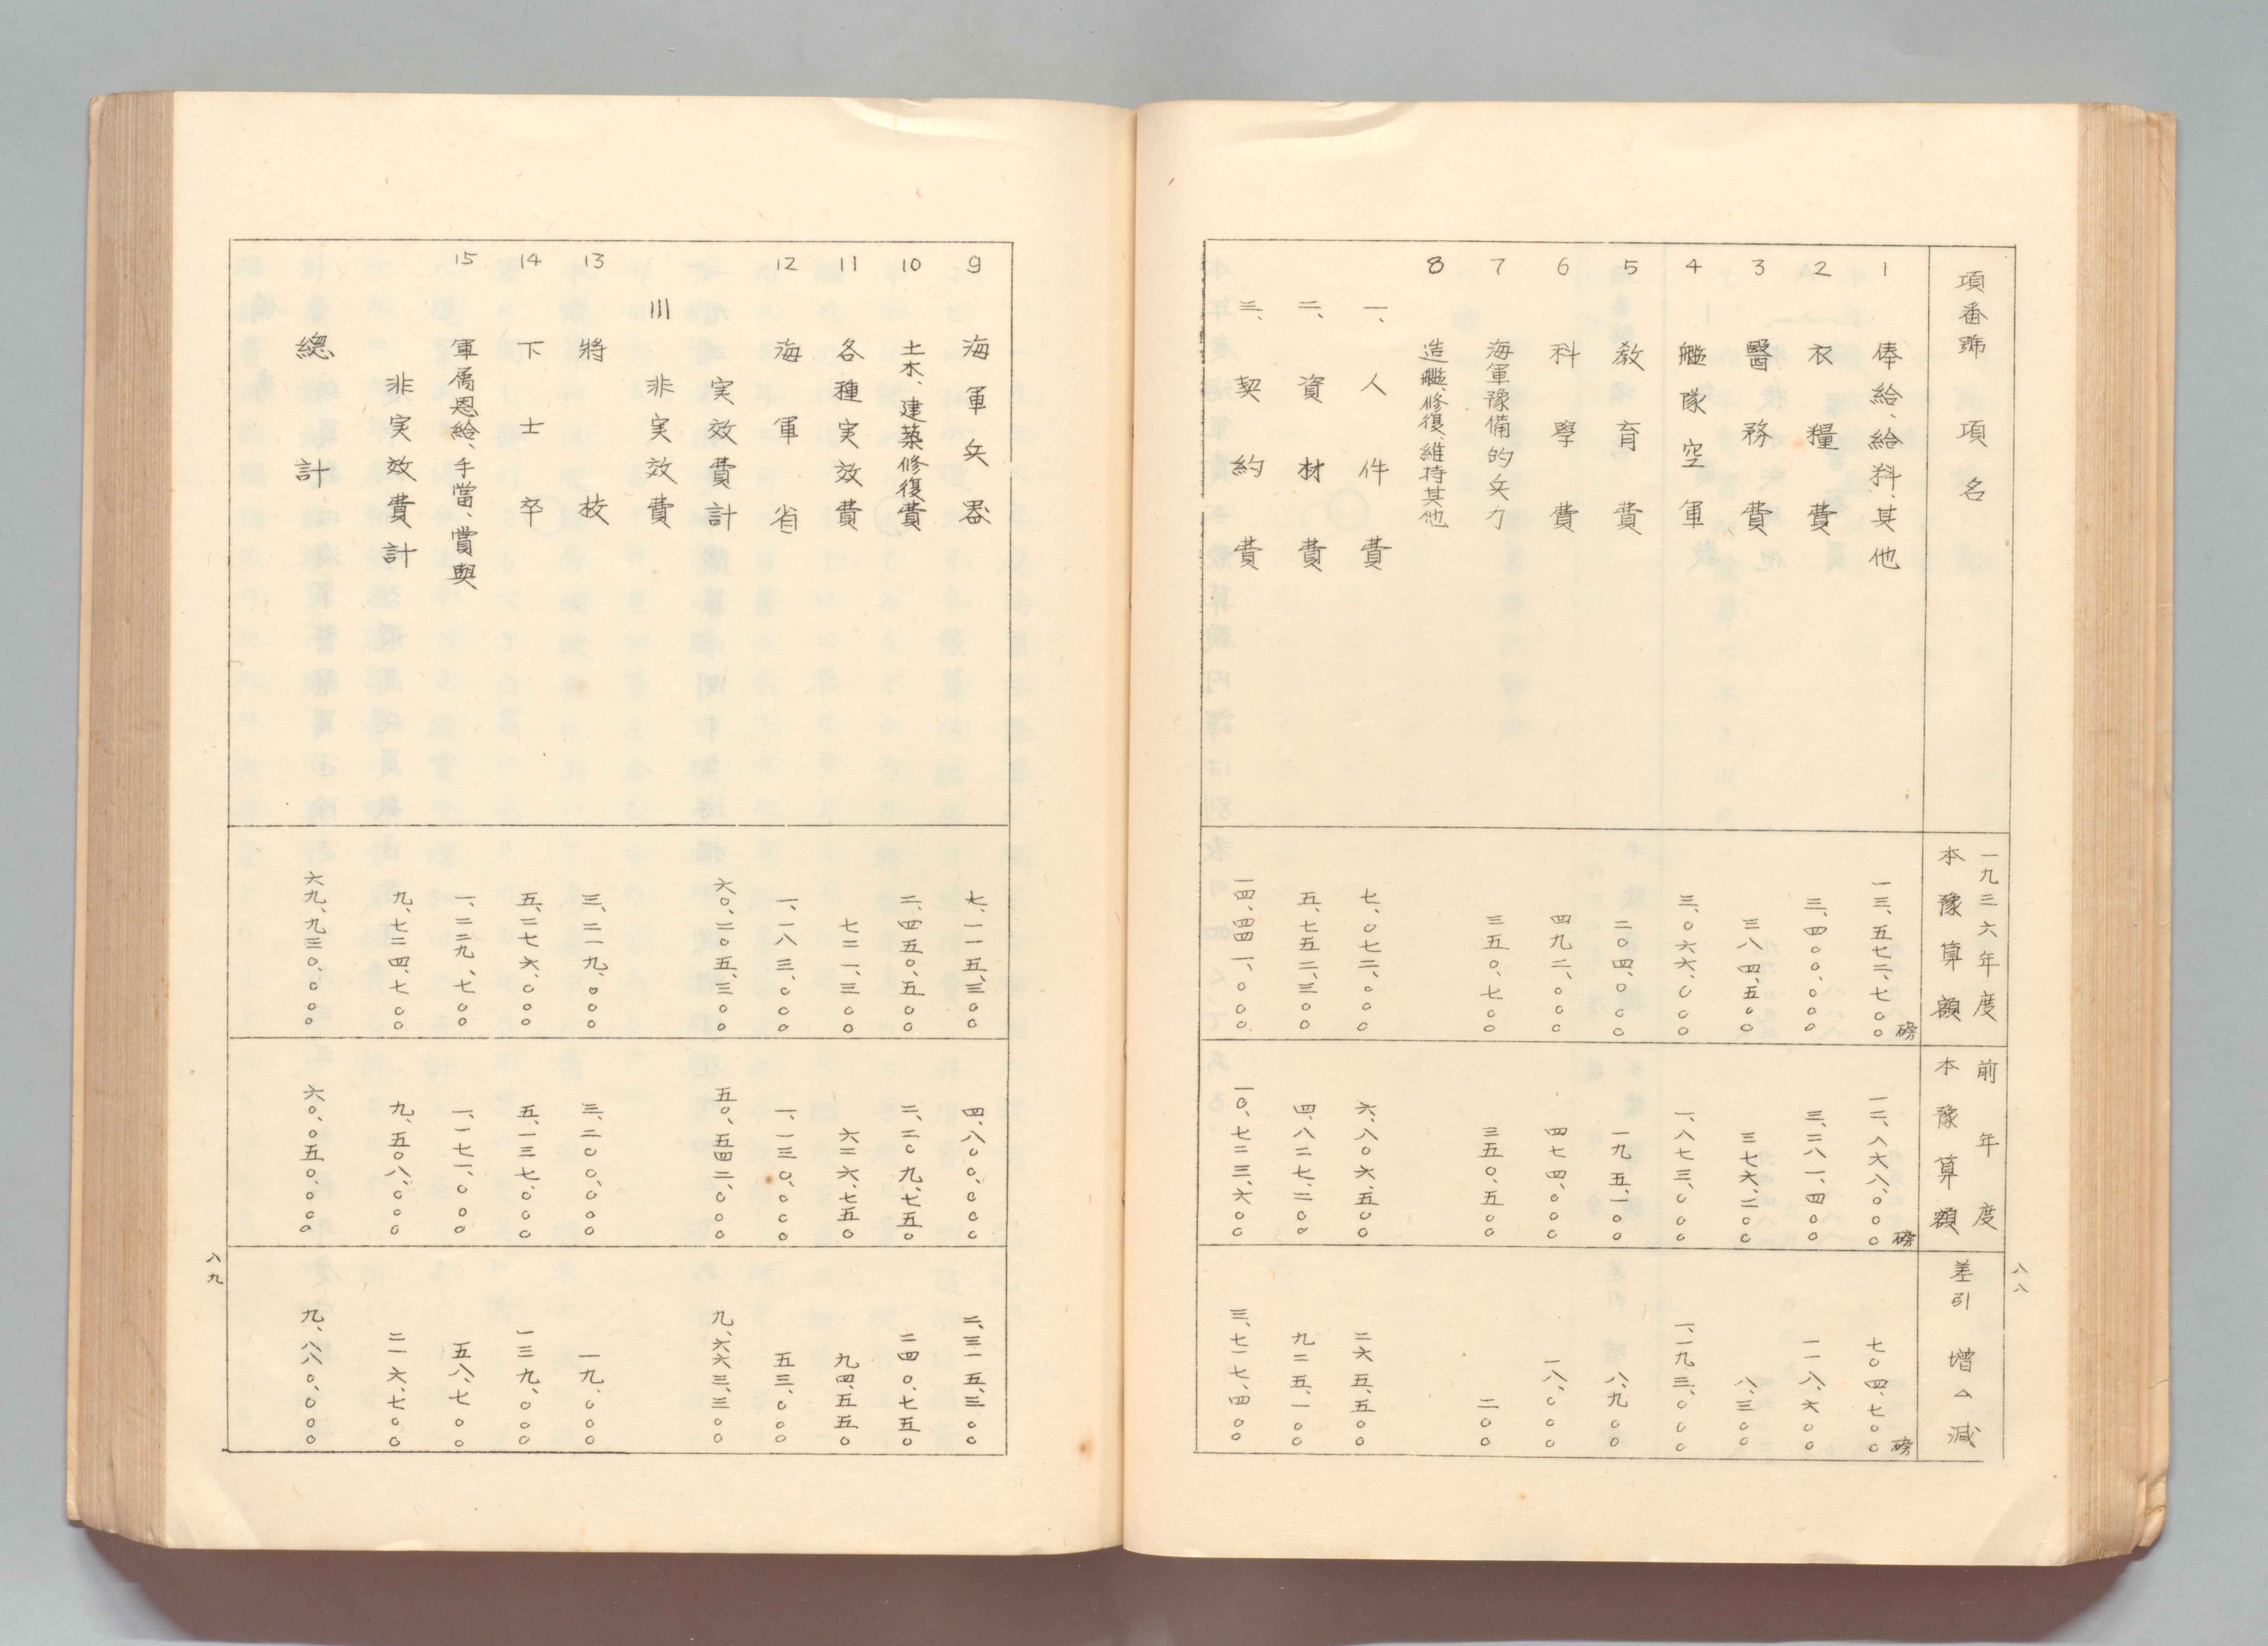 項番號 項名 一九三六年度 本豫算額 前年度 本豫算額 差引增△減
八八
1 俸給、給料、其他 一三、五七二、七〇〇磅 一二、八六八、〇〇〇磅 七〇四、七〇〇磅
2 衣糧費 三、四〇〇、〇〇〇 三、二八一、四〇〇 一一八、六〇〇
3 醫務費 三八四、五〇〇 三七六、二〇〇 八、三〇〇
4 艦隊空軍 三、〇六六、〇〇〇 一、八七三、〇〇〇 一、一九三、〇〇〇
5 教育費 二〇四、〇〇〇 一九五、一〇〇 八、九〇〇
6 科學費 四九二、〇〇〇 四七四、〇〇〇 一八、〇〇〇
7 海軍豫備的兵力 三五〇、七〇〇 三五〇、五〇〇 二〇〇
8 造艦、修復、維持其他
一、人件費 七、〇七二、〇〇〇 六、八〇六、五〇〇 二六五、五〇〇
二、資材費 五、七五二、三〇〇 四、八二七、二〇〇 九二五、一〇〇
三、契約費 一四、四四一、〇〇〇 一〇、七二三、六〇〇 三、七一七、四〇〇
9 海軍兵器 七、一一五、三〇〇 四、八〇〇、〇〇〇 二、三一五、三〇〇
10 土木、建築修復費 二、四五〇、五〇〇 二、二〇九、七五〇 二四〇、七五〇
11 各種実效費 七二一、三〇〇 六二六、七五〇 九四、五五〇
12 海軍省 一、一八三、〇〇〇 一、一三〇、〇〇〇 五三、〇〇〇
実效費計 六〇、二〇五、三〇〇 五〇、五四二、〇〇〇 九、六六三、三〇〇
III 非実效費
13 將校 三、二一九、〇〇〇 三、二〇〇、〇〇〇 一九、〇〇〇
14 下士卒 五、二七六、〇〇〇 五、一三七、〇〇〇 一三九、〇〇〇
15 軍属恩給、手當、賞與 一、二二九、七〇〇 一、一七一、〇〇〇 五八、七〇〇
非実效費計 九、七二四、七〇〇 九、五〇八、〇〇〇 二一六、七〇〇
總計 六九、九三〇、〇〇〇 六〇、〇五〇、〇〇〇 九、八八〇、〇〇〇
八九